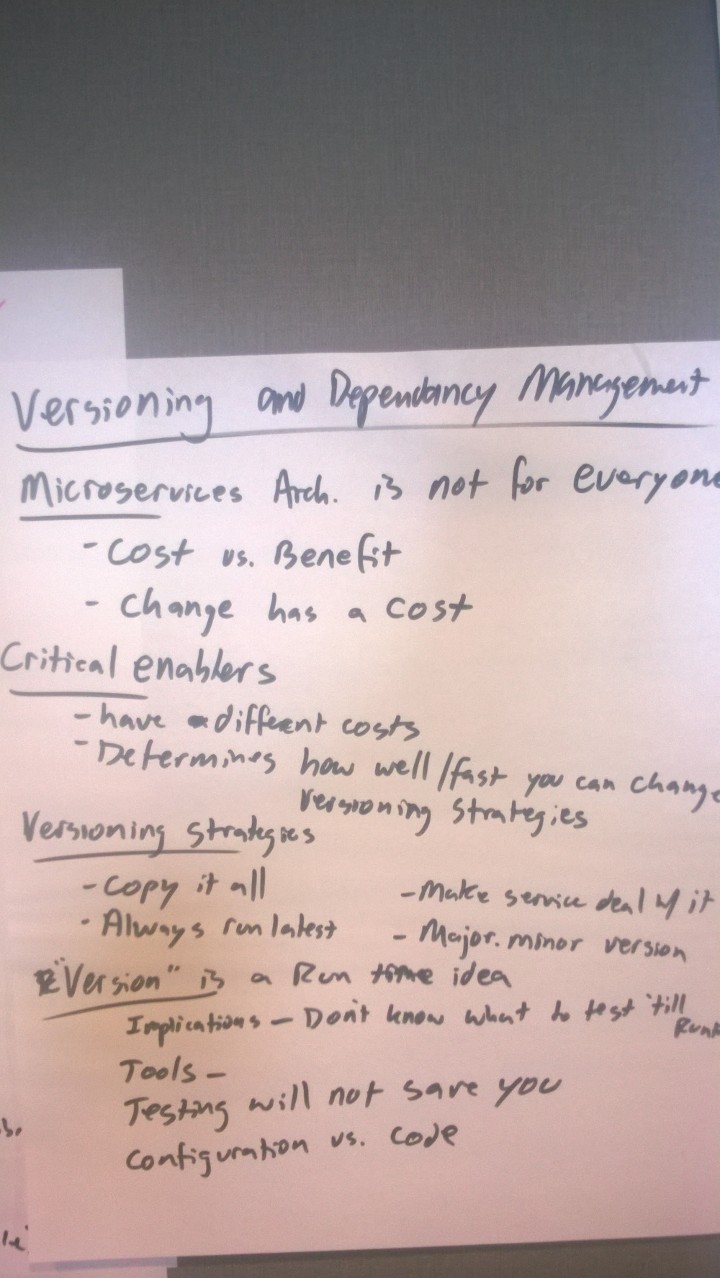 Versioning and Dependancy Management
Microservices Arch. is not for everyone
- Cost vs. Benefit
- Change has a cost
Critical enablers
- have different costs
- Determines how well/fast you can change
versioning strategies
Versioning strategies
- Copy it all
- Make service deal w/ it
- Always run latest
- Major.minor version
"Version" is a Run time idea
Implications - Don't know what to test 'till
Tools -
Testing will not save you
Configuration vs. code